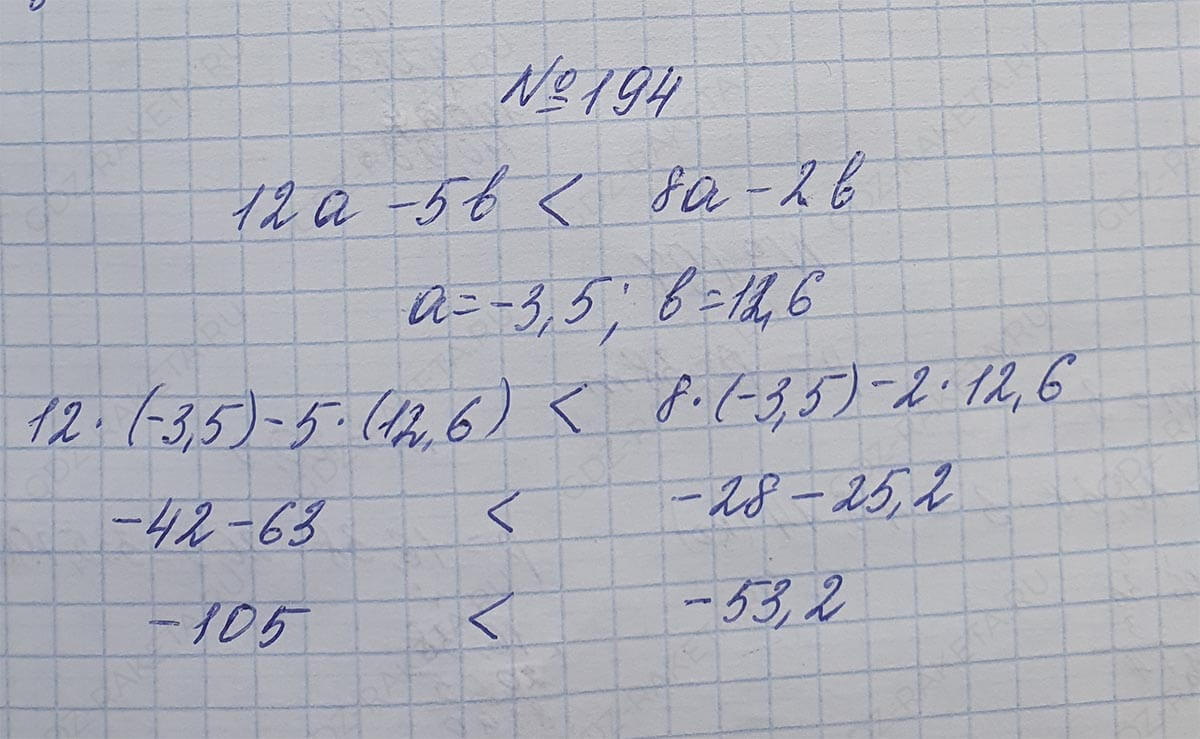 №194
12a - 5b < 8a - 2b
a = -3,5; b = 12,6
12·(-3,5) - 5·(12,6) < 8·(-3,5) - 2·12,6
-42 - 63 < -28 - 25,2
-105 < -53,2